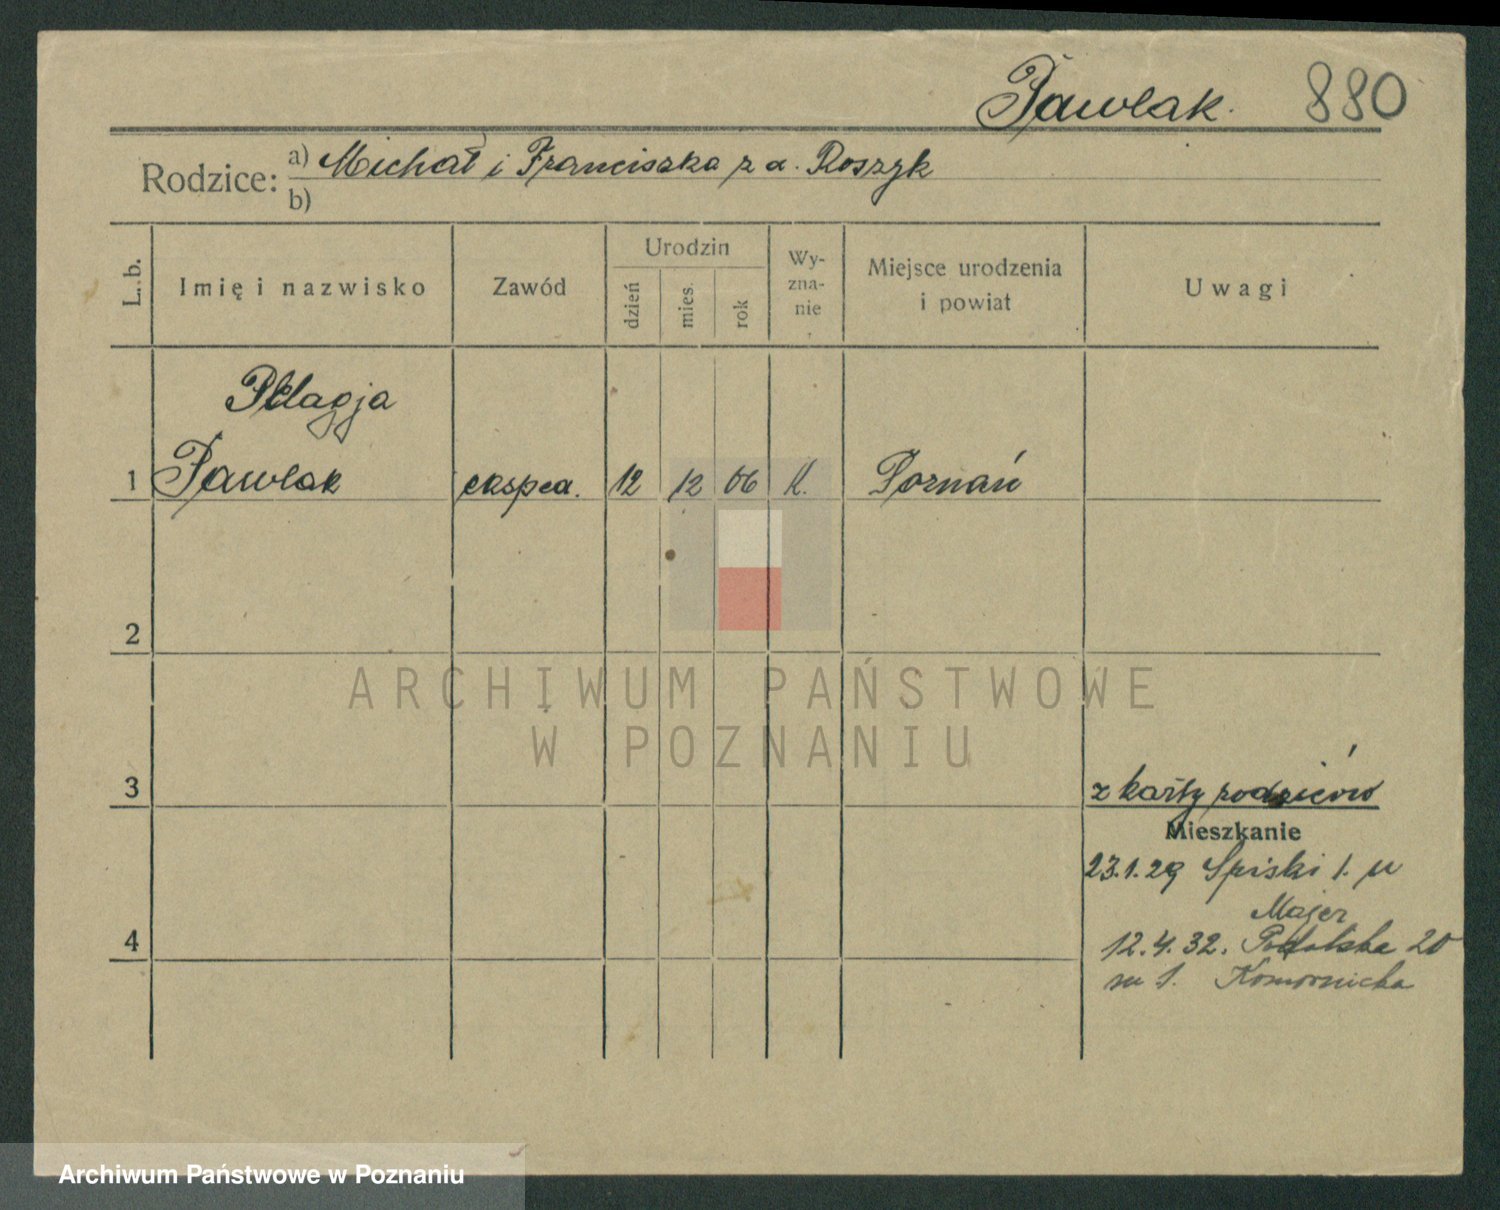 Pawlak. 880
Rodzice: a) Michał i Franciszka z d. Roszyk
b)
L. b. Imię i nazwisko Zawód Urodzin dzień mies. rok Wy-zna-nie Miejsce urodzenia i powiat Uwagi
Pelagja
1 Pawlak eksped. 12 12 06 k. Poznań
2
ARCHIWUM PAŃSTWOWE
W POZNANIU
3 z karty rodziców
Mieszkanie
23.1.29 Spiski 1. u
Majer
4 12.4.32. Podolska 20
m 1. Komornicka
Archiwum Państwowe w Poznaniu